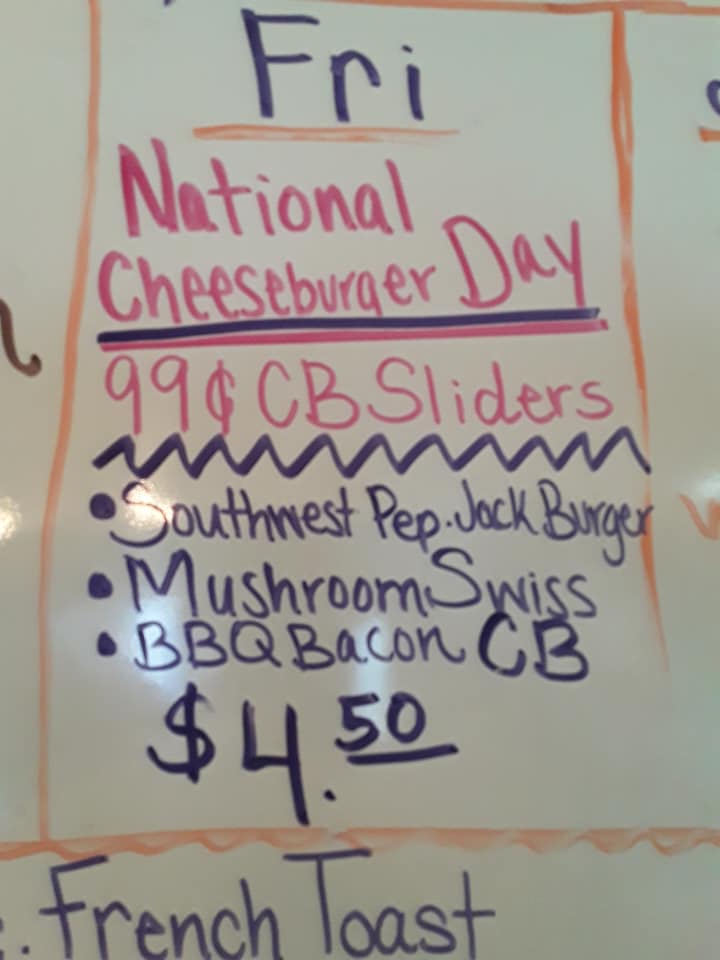 Fri
National
Cheeseburger Day
99¢ CB Sliders
•Southwest Pep. Jack Burger
•Mushroom Swiss
•BBQ Bacon CB
$4.50
French Toast